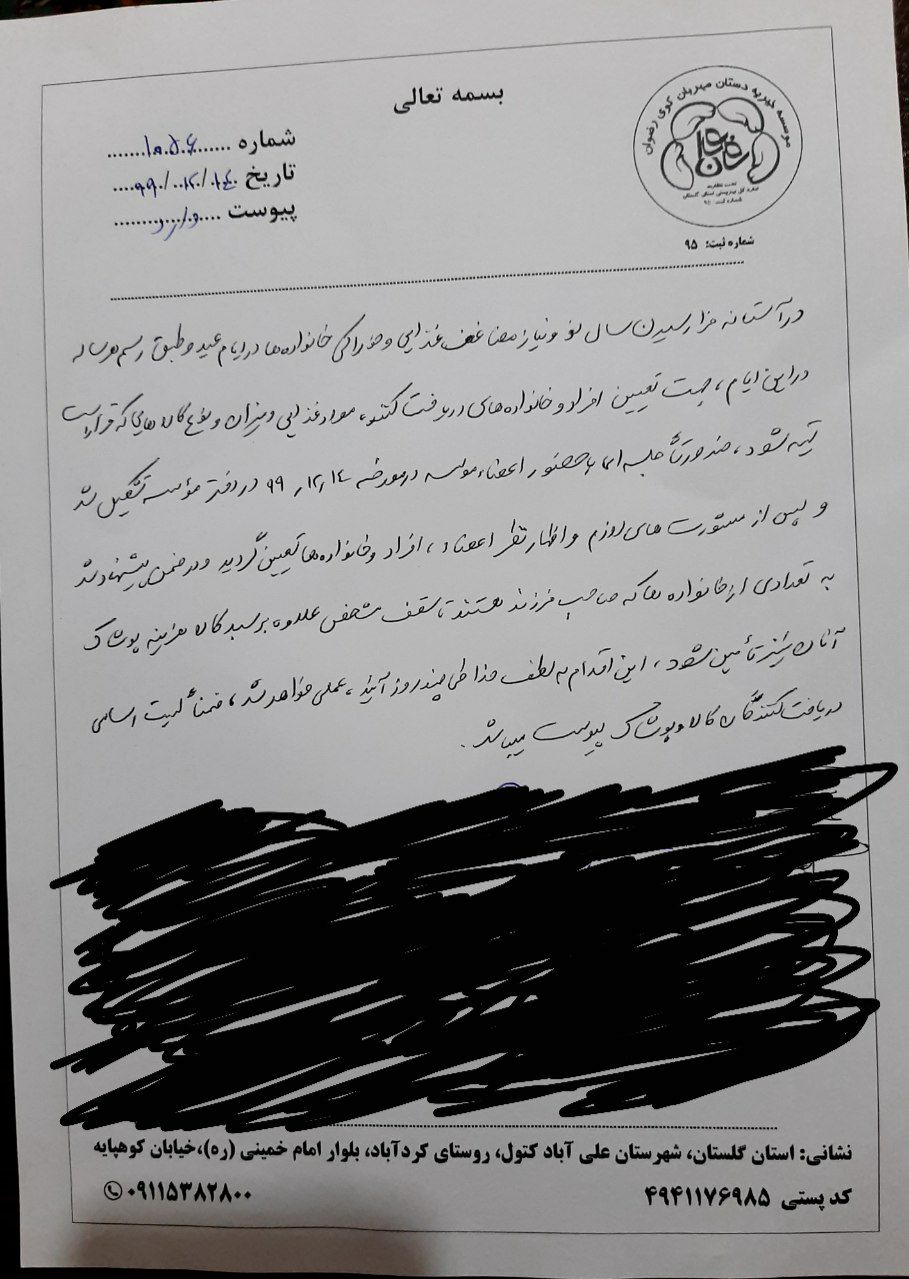 بسمه تعالی
موسسه خیریه دستان مهربان کوی رضوان
رضوان
تحت نظارت
اداره کل بهزیستی استان گلستان
شماره ثبت ۹۵
شماره ثبت: ۹۵
شماره ......۱۰۵۶......
تاریخ ۹۹/۱۲/۱۴
پیوست ....دارد....
در آستانه فرا رسیدن سال نو و نیاز مضاعف غذایی و خوراکی خانواده ها در ایام عید و طبق رسم هر ساله
در این ایام، جهت تعیین افراد و خانواده های دریافت کننده، مواد غذایی و میزان و نوع کالاهایی که قرار است
تهیه شود، ضرورتاً جلسه ای با حضور اعضاء موسسه در مورخه ۹۹/۱۲/۱۴ در دفتر مؤسسه تشکیل شد
و پس از مشورت های لازم و اظهار نظر اعضاء، افراد و خانواده ها تعیین گردید و در ضمن پیشنهاد شد
به تعدادی از خانواده ها که صاحب فرزند هستند تا سقف مشخص علاوه بر سبد کالا هزینه پوشاک
آنان نیز تأمین شود، این اقدام به لطف خدا طی چند روز آینده، عملی خواهد شد، ضمناً لیست اسامی
دریافت کنندگان کالا و پوشاک پیوست میباشد.
نشانی: استان گلستان، شهرستان علی آباد کتول، روستای کردآباد، بلوار امام خمینی (ره)،خیابان کوهپایه
کد پستی ۴۹۴۱۱۷۶۹۸۵ ۰۹۱۱۵۳۸۲۸۰۰